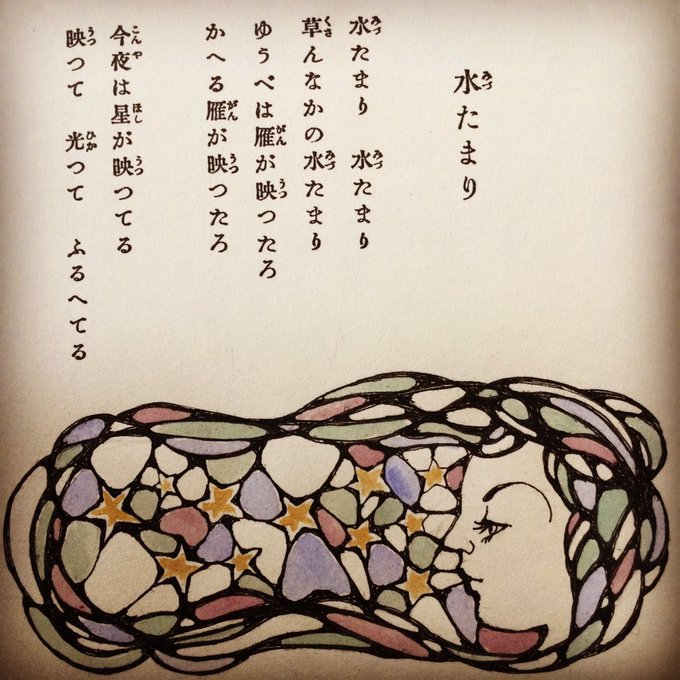 水たまり
水たまり　水たまり
草んなかの水たまり
ゆうべは雁が映つたろ
かへる雁が映つたろ
今夜は星が映つてる
映つて　光つて　ふるへてる